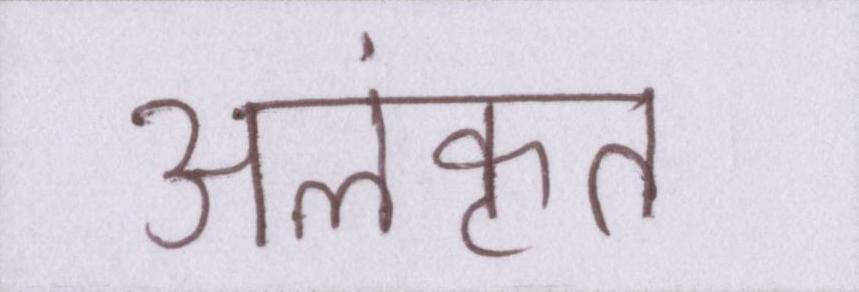 अलंकृत